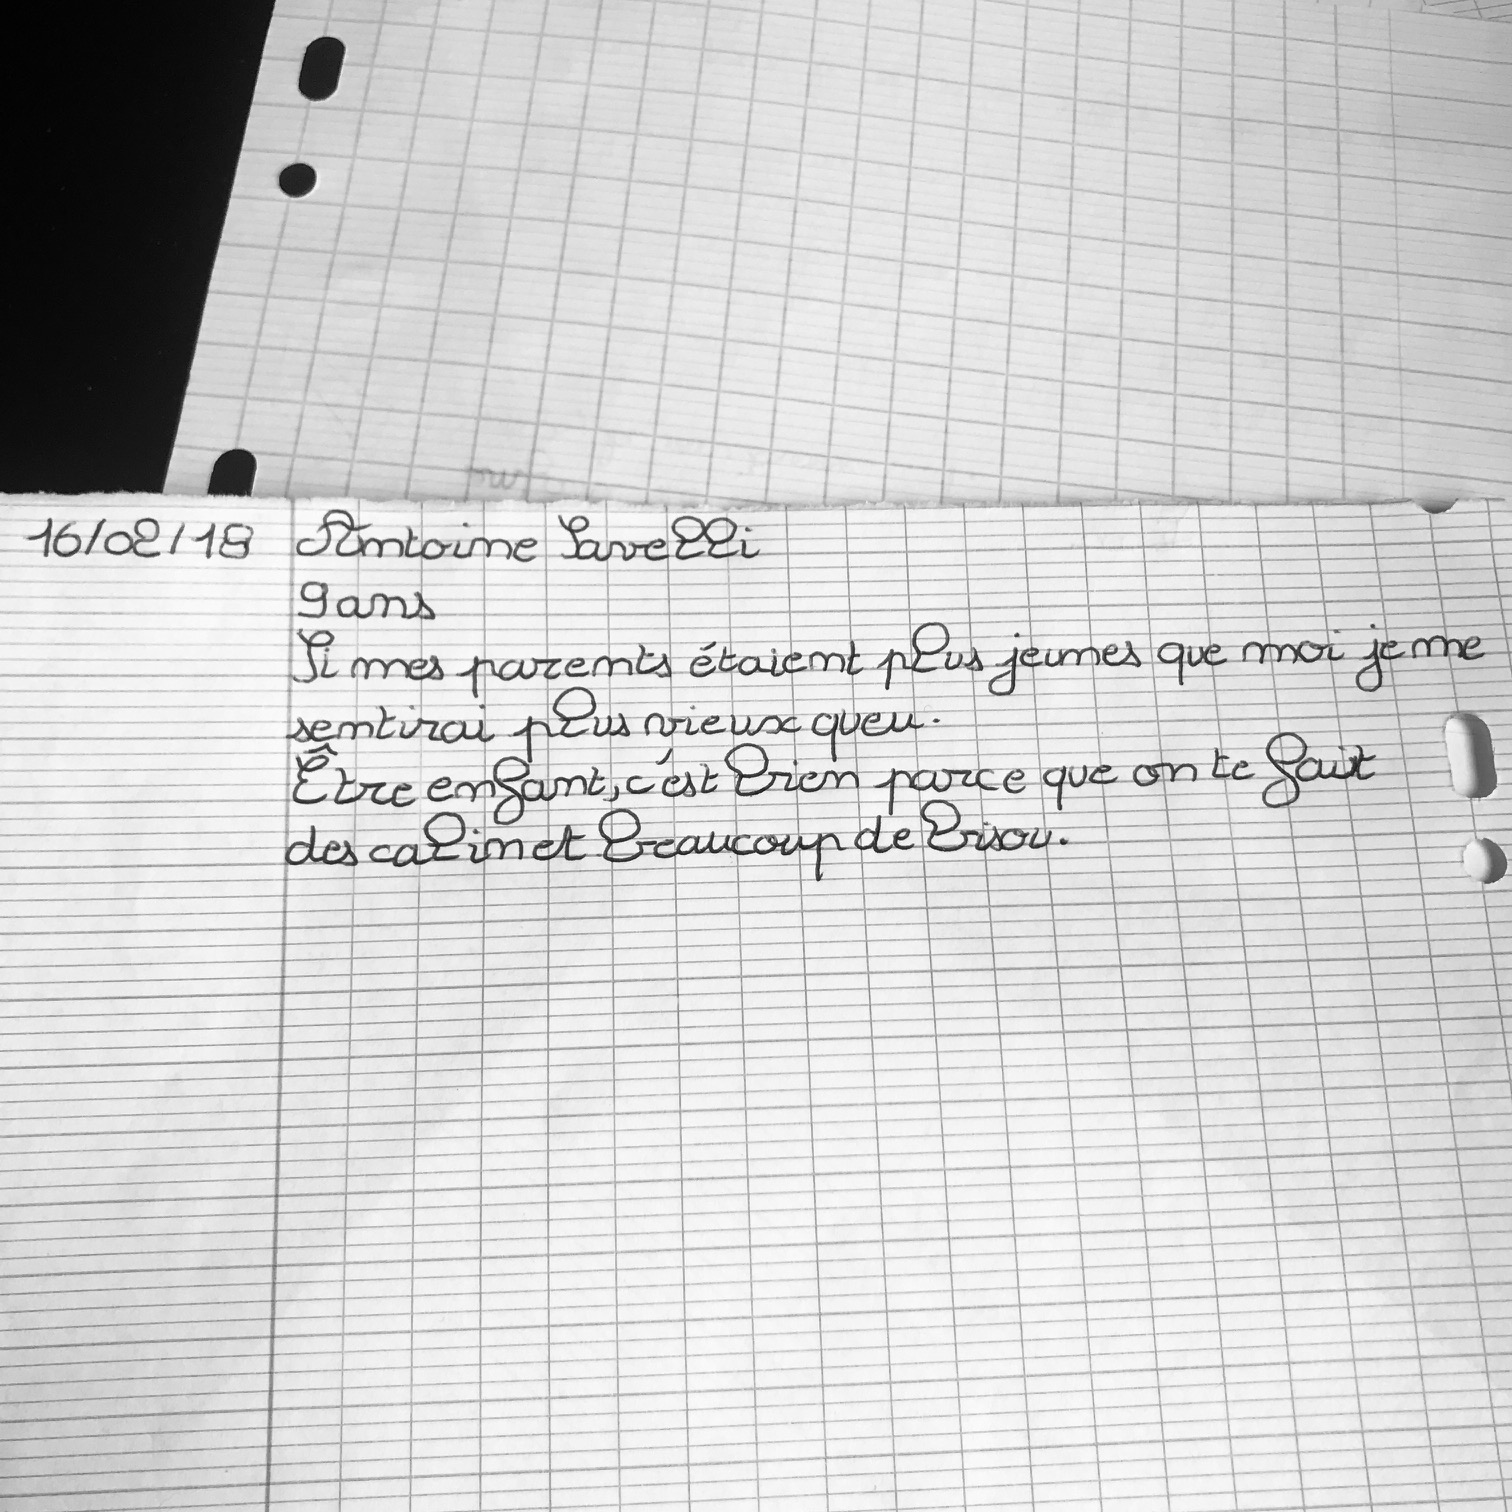 16/02/18 Antoine Savelli
9 ans
Si mes parents étaient plus jeunes que moi je me
sentirai plus vieux queu.
Être enfant, c'est bien parce que on te fait
des calin et beaucoup de bisou.